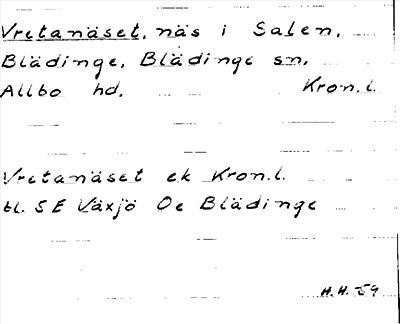 Vretanäset, näs i Salen,
Blädinge, Blädinge sn,
Allbo hd, Kron.l.
Vretanäset ek Kron.l.
bl. 5E Växjö Oe Blädinge
H.H. 59